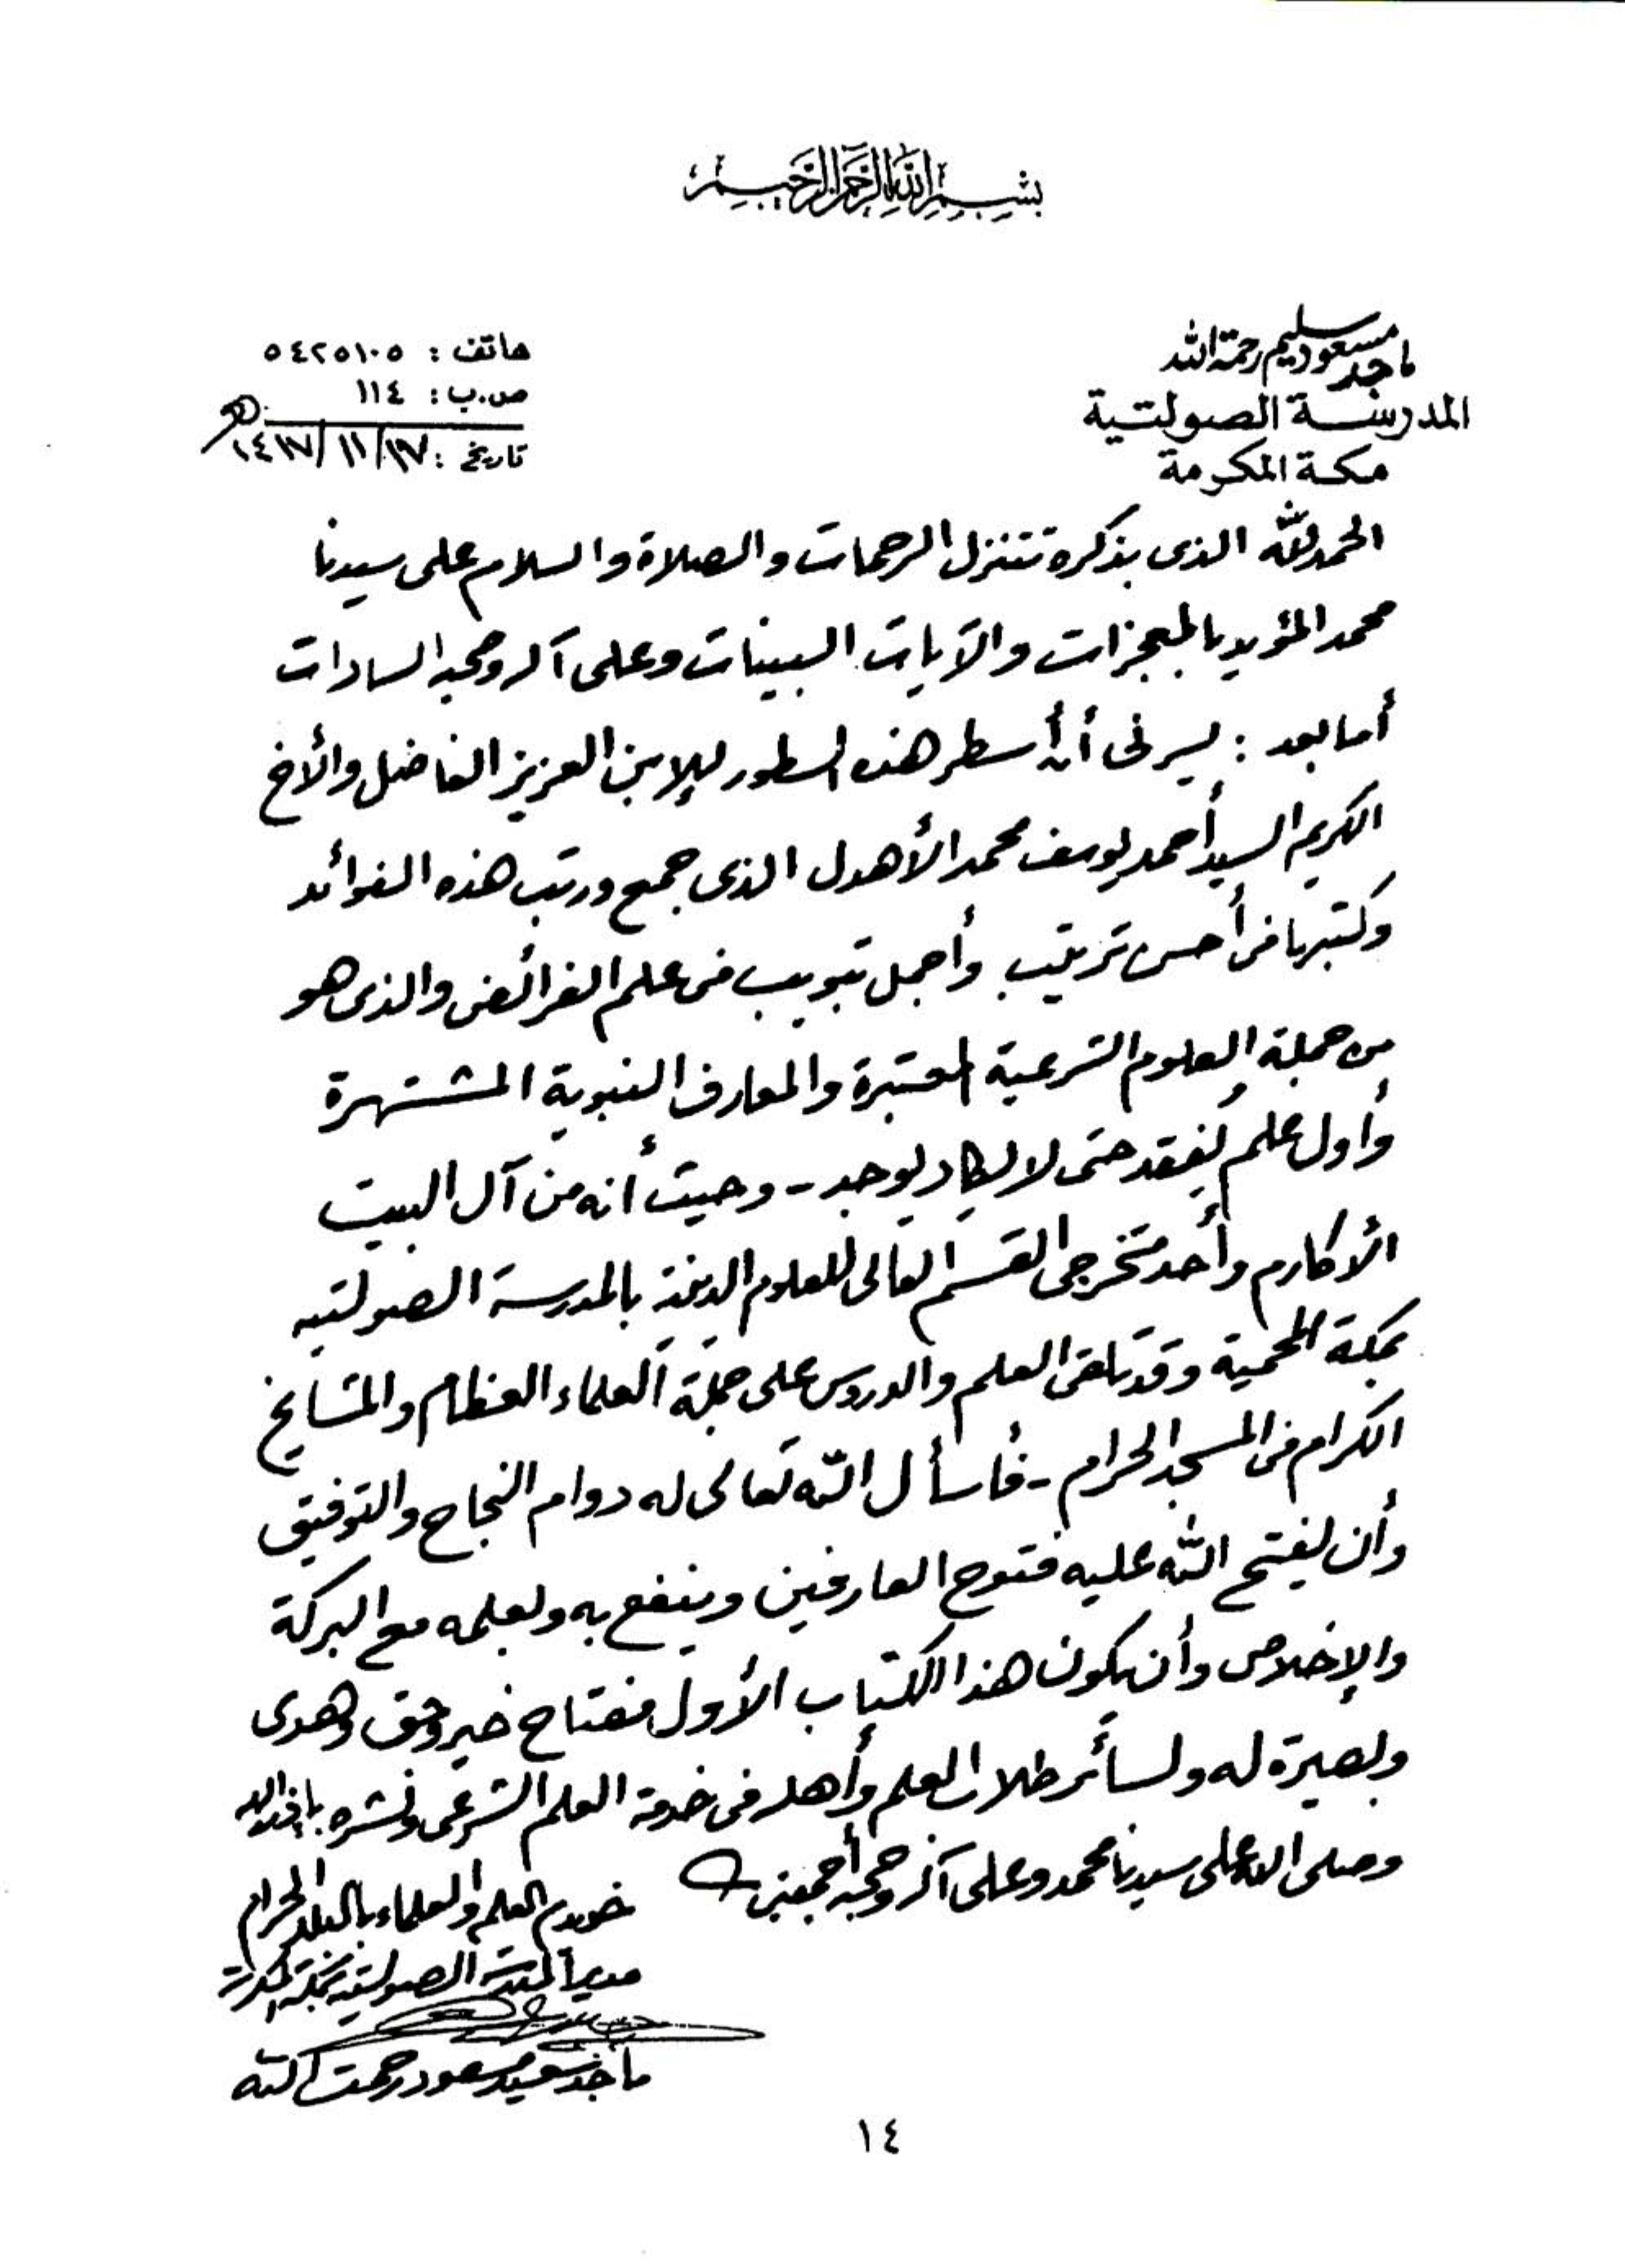 بسم الله الرحمن الرحيم
ماجد مسعود سليم رحمة الله
المدرسة الصولتية
مكة المكرمة
هاتف : ٥٤٢٥١٠٥
ص.ب : ١١٤
تاريخ : ١٤١٧/١١/١٧
الحمد لله الذى بذكره تتنزل الرحمات والصلاة والسلام على سيدنا
محمد المؤيد بالمعجزات والآيات البينات وعلى آله وصحبه السادات
أما بعد : يسرنى أن أسطر هذه السطور للإبن العزيز الفاضل والأخ
الكريم السيد أحمد يوسف محمد الأهدل الذى جمع ورتب هذه الفوائد
وكتبها فى أحسن ترتيب وأجمل تبويب فى علم الفرائض والذى هو
من جملة العلوم الشرعية المعتبرة والمعارف النبوية المشتهرة
وأول علم يُفقد حتى لا يكاد يوجد - وحيث أنه من آل البيت
الأكارم وأحد متخرجى القسم العالى للعلوم الدينية بالمدرسة الصولتيه
بمكة المحمية وقد تلقى العلم والدروس على جملة العلماء العظام والمشايخ
الكرام فى المسجد الحرام - فأسأل الله تعالى له دوام النجاح والتوفيق
وأن يفتح الله عليه فتوح العارفين وينفع به وبعلمه مع البركة
والإخلاص وأن يكون هذا الكتاب الأول مفتاح خير وحق وهدى
وبصيرة له ولسائر طلاب العلم وأهله فى خدمة العلم الشرعى ونشره بإذن الله
وصلى الله على سيدنا محمد وعلى آله وصحبه أجمعين
خويدم العلم والعلماء بالبلد الحرام
مدير المدرسة الصولتيه بمكة المكرمة
ماجد سعيد مسعود رحمت الله
١٤